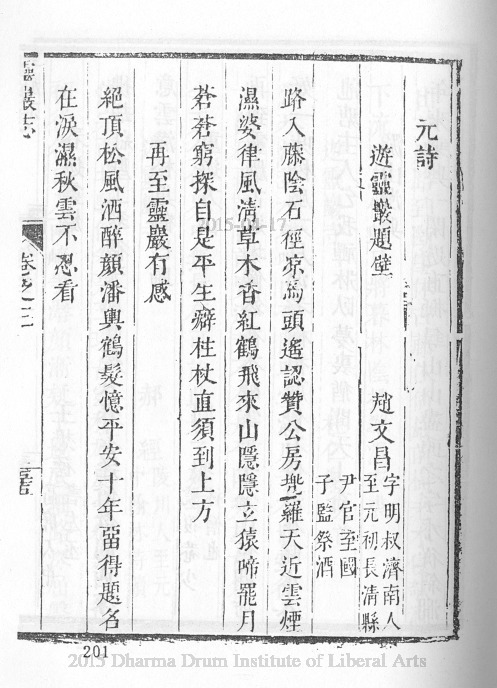 元詩
遊靈巖題壁 趙文昌
字明叔濟南人
至元初長清縣
尹官至國
子監祭酒
路入藤陰石徑凉馬頭遙認贊公房兠羅天近雲煙
濕婆律風淸草木香紅鶴飛來山隱隱立猿啼罷月
蒼蒼窮探自是平生癖柱杖直須到上方
再至靈巖有感
絕頂松風洒醉顔潘輿鶴髮憶平安十年畱得題名
在淚濕秋雲不忍看
靈巖志
卷之三
201
2015 Dharma Drum Institute of Liberal Arts